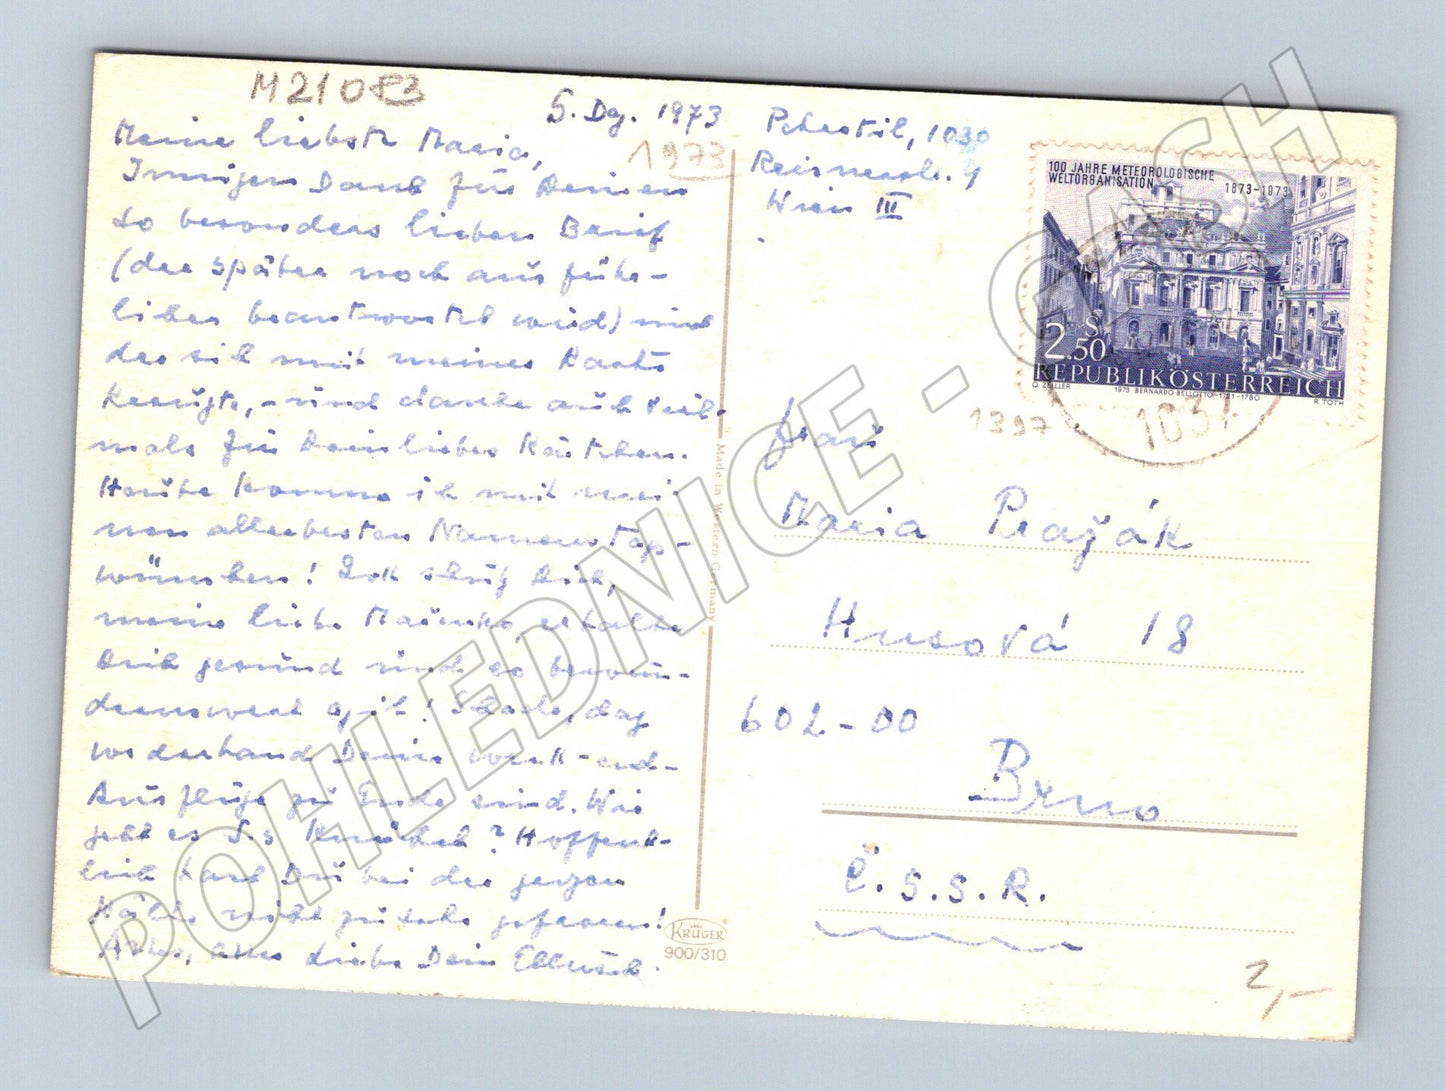 M21083
5. Dez. 1973
1973
Meine liebste Maria,
Innigen Dank für Deinen
so besonders lieben Brief
(der später noch ausführ-
licher beantwortet wird) und
der sich mit meiner Karte
kreuzte, – und danke auch viel-
mals für Dein liebes Kärtchen.
Heute komme ich mit mei-
nen allerbesten Namenstags-
wünschen! Gott schütz Dich,
meine liebe Mařenko, erhalte
Dich gesund und so bewun-
dernswert agil! Schade, dass
vorderhand Deine Week-end-
Ausflüge zu Ende sind. Wie
geht es Knöchel? Hoffent-
lich hast Du bei der jetzigen
Kälte nicht zu sehr gefroren!
Alles, alles Liebe Dein
, 1030
Reisnerstr.
Wien III
100 JAHRE METEOROLOGISCHE
WELTORGANISATION 1873-1973
S
2.50
REPUBLIK ÖSTERREICH
O. ZEILLER 1973 BERNARDO BELLOTTO 1721-1780 R. TOTH
1037
1397
Frau
Maria Pražák
Husová 18
602-00
Brno
Č.S.S.R.
Made in Western Germany
KRÜGER
900/310
2,-
POHLEDNICE - CASH